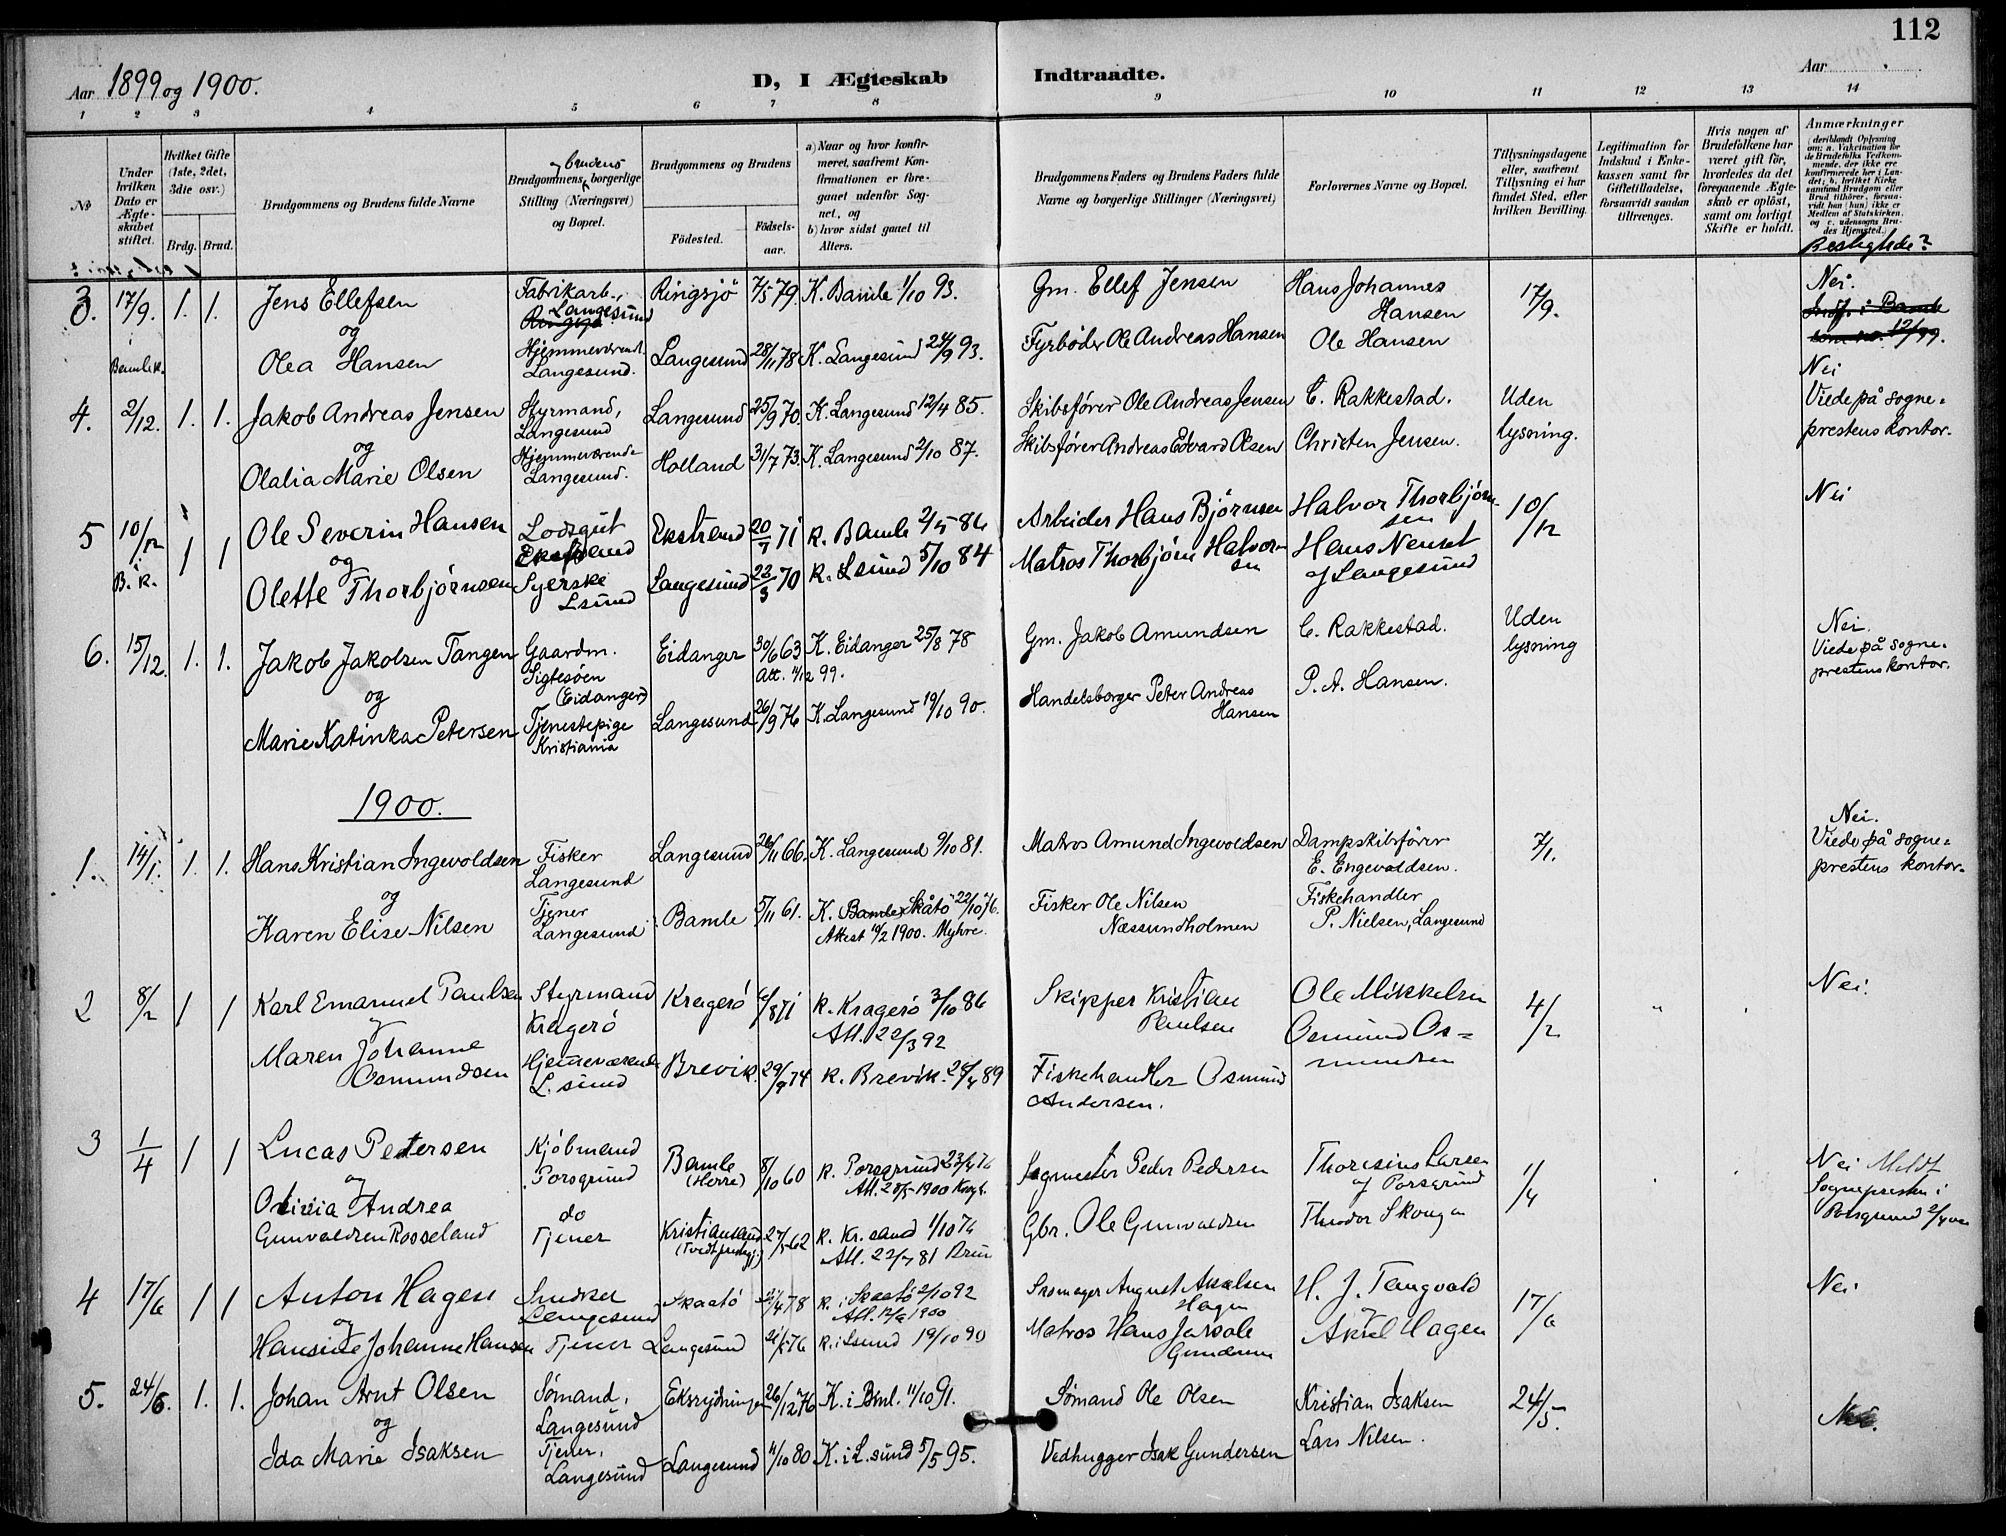 112
Aar 1899 og 1900.
D, I Ægteskab Indtraadte.
Aar
1 2 3 4 5 6 7 8 9 10 11 12 13 14
No
Under hvilken Dato er Ægteskabet stiftet.
Hvilket Gifte (1ste, 2det, 3die osv.)
Brdg. Brud.
Brudgommens og Brudens fulde Navne
Brudgommens og brudens borgerlige Stilling (Næringsvei) og Bopæl.
Brudgommens og Brudens
Födested.
Födselsaar.
a) Naar og hvor konfirmeret, saafremt Konfirmationen er foregaaet udenfor Sognet, og
b) hvor sidst gaaet til Alters.
Brudgommens Faders og Brudens Faders fulde Navne og borgerlige Stilling (Næringsvei)
Forlovernes Navne og Bopæl.
Tillysningsdagene eller, saafremt Tillysning ei har fundet Sted, efter hvilken Bevilling.
Legitimation for Indskud i Enkekassen samt for Giftetilladelse, forsaavidt saadan tiltrænges.
Hvis nogen af Brudefolkene har været gift för, hvorledes da det foregaaende Ægteskab er oplöst, samt om lovligt Skifte er holdt.
Anmærkninger
(deriblandt Oplysning om: a. Vakcination for de Brudefolks Vedkommende, der ikke ere konfirmerede her i Landet; b. hvilket Kirkesamfund Brudgom eller Brud tilhörer, forsaavidt han (hun) ikke er Medlem af Statskirken, og c. udensogns Brudes Hjemsted.)
Beslegtede?
3. 17/9. i Bamle k. 1. 1. Jens Ellefsen Fabrikarb., Langesund Ringsjö 7/5 79. K. Bamle 1/10 93. Gm. Ellef Jensen Hans Johannes Hansen 17/9. Nei.
Indf. i Bamle som no. 12/99.
og
Olea Hansen Hjemmeværend. Langesund. Langesund 28/11 78 K. Langesund 24/9 93. Fyrbøder Ole Andreas Hansen Ole Hansen
4. 2/12. 1. 1. Jakob Andreas Jensen Styrmand, Langesund Langesund 25/9 70. K. Langesund 12/4 85. Skibsfører Ole Andreas Jensen C. Rakkestad. Uden lysning. Nei Viede på sogneprestens kontor.
og
Olalia Marie Olsen Hjemmeværende Langesund. Holland 31/7 73. K. Langesund 2/10 87. Skibsfører Andreas Edvard Olsen Christen Jensen.
5 10/12 i B. k. 1 1 Ole Severin Hansen Lodsgut Ekstrand Ekstrand 20/7 71 k. Bamle 2/5 86 Arbeider Hans Björnsen Halvor Thorbjörnsen 10/12 Nei
og
Olette Thorbjörnsen Syerske Lsund Langesund 22/3 70 k. Lsund 5/10 84 Matros Thorbjörn Halvorsen Hans Nenset af Langesund
6. 15/12. 1. 1. Jakob Jakobsen Tangen Gaardm. Sigtesøen (Eidanger) Eidanger 30/6 63 K. Eidanger 25/8 78 Att. 11/12 99. Gm. Jakob Amundsen C. Rakkestad. Uden lysning Nei. Viede på sogneprestens kontor.
og
Marie Katinka Petersen Tjenestepige Kristiania Langesund 26/9 76 K. Langesund 19/10 90. Handelsborger Peter Andreas Hansen P. A. Hansen.
1900.
1. 14/1. 1. 1. Hans Kristian Ingevoldsen Fisker Langesund Langesund 26/11 66. K. Langesund 9/10 81. Matros Amund Ingevoldsen Dampskibsfører E. Engevoldsen. 7/1. Nei. Viede på sogneprestens kontor.
og
Karen Elise Nilsen Tjener Langesund Bamle 5/11 61. K. Bamle, Skåtö 22/10 76. Attest 10/2 1900. Myhre. Fisker Ole Nilsen Næssundholmen Fiskehandler P. Nielsen, Langesund
2 8/2 1 1 Karl Emanuel Paulsen Styrmand Kragerö Kragerö /8 71 k. Kragerö 3/10 86 Att. 22/3 92 Skipper Kristian Paulsen Ole Mikkelsen 4/2 Nei.
Maren Johanne Osmundsen Hjemmeværende L. sund Brevik. 29/9 74 k. Brevik. 28/4 89 Fiskehandler Osmund Andersen. Osmund Osmundsen
3 1/4 1 1 Lucas Petersen Kjöbmand Porsgrund Bamle (Herre) 8/10 60 k. Porsgrund 23/4 76 Att. 28/5 1900 Sagmester Peder Pedersen Thoresius Larsen af Porsgrund 1/4 Nei Meldt Sognepresten i Porsgrund 2/4 00
og
Olivia Andrea Gunvaldsen Rosseland do Tjener Kristiansand 27/5 62 k. Kr.sand 1/10 76 Att. 22/7 81 Brun Gbr. Ole Gunvaldsen Theodor Skougen
4 17/6 1 1 Anton Hagen Snedker Langesund Skaatö /4 78 k. i Skaatö 2/10 92 Att. 12/6 1900 August Hagen H. J. Tangvald 17/6 Nei
og
Hansine Johanne Hansen Tjener Langesund 21/5 76 k. i Lsund 19/10 90 Matros Hans Gundersen Aksel Hagen
5. 24/6. 1. 1. Johan Arnt Olsen Sømand, Langesund Eksrydningen 26/12 76 K. i Bml. 11/10 91. Sømand Ole Olsen Kristian Isaksen 24/5. Nei.
og
Ida Marie Isaksen Tjener, Langesund Langesund 11/10 80 K. i L.sund 5/5 95. Vedhugger Isak Gundersen Lars Nilsen.